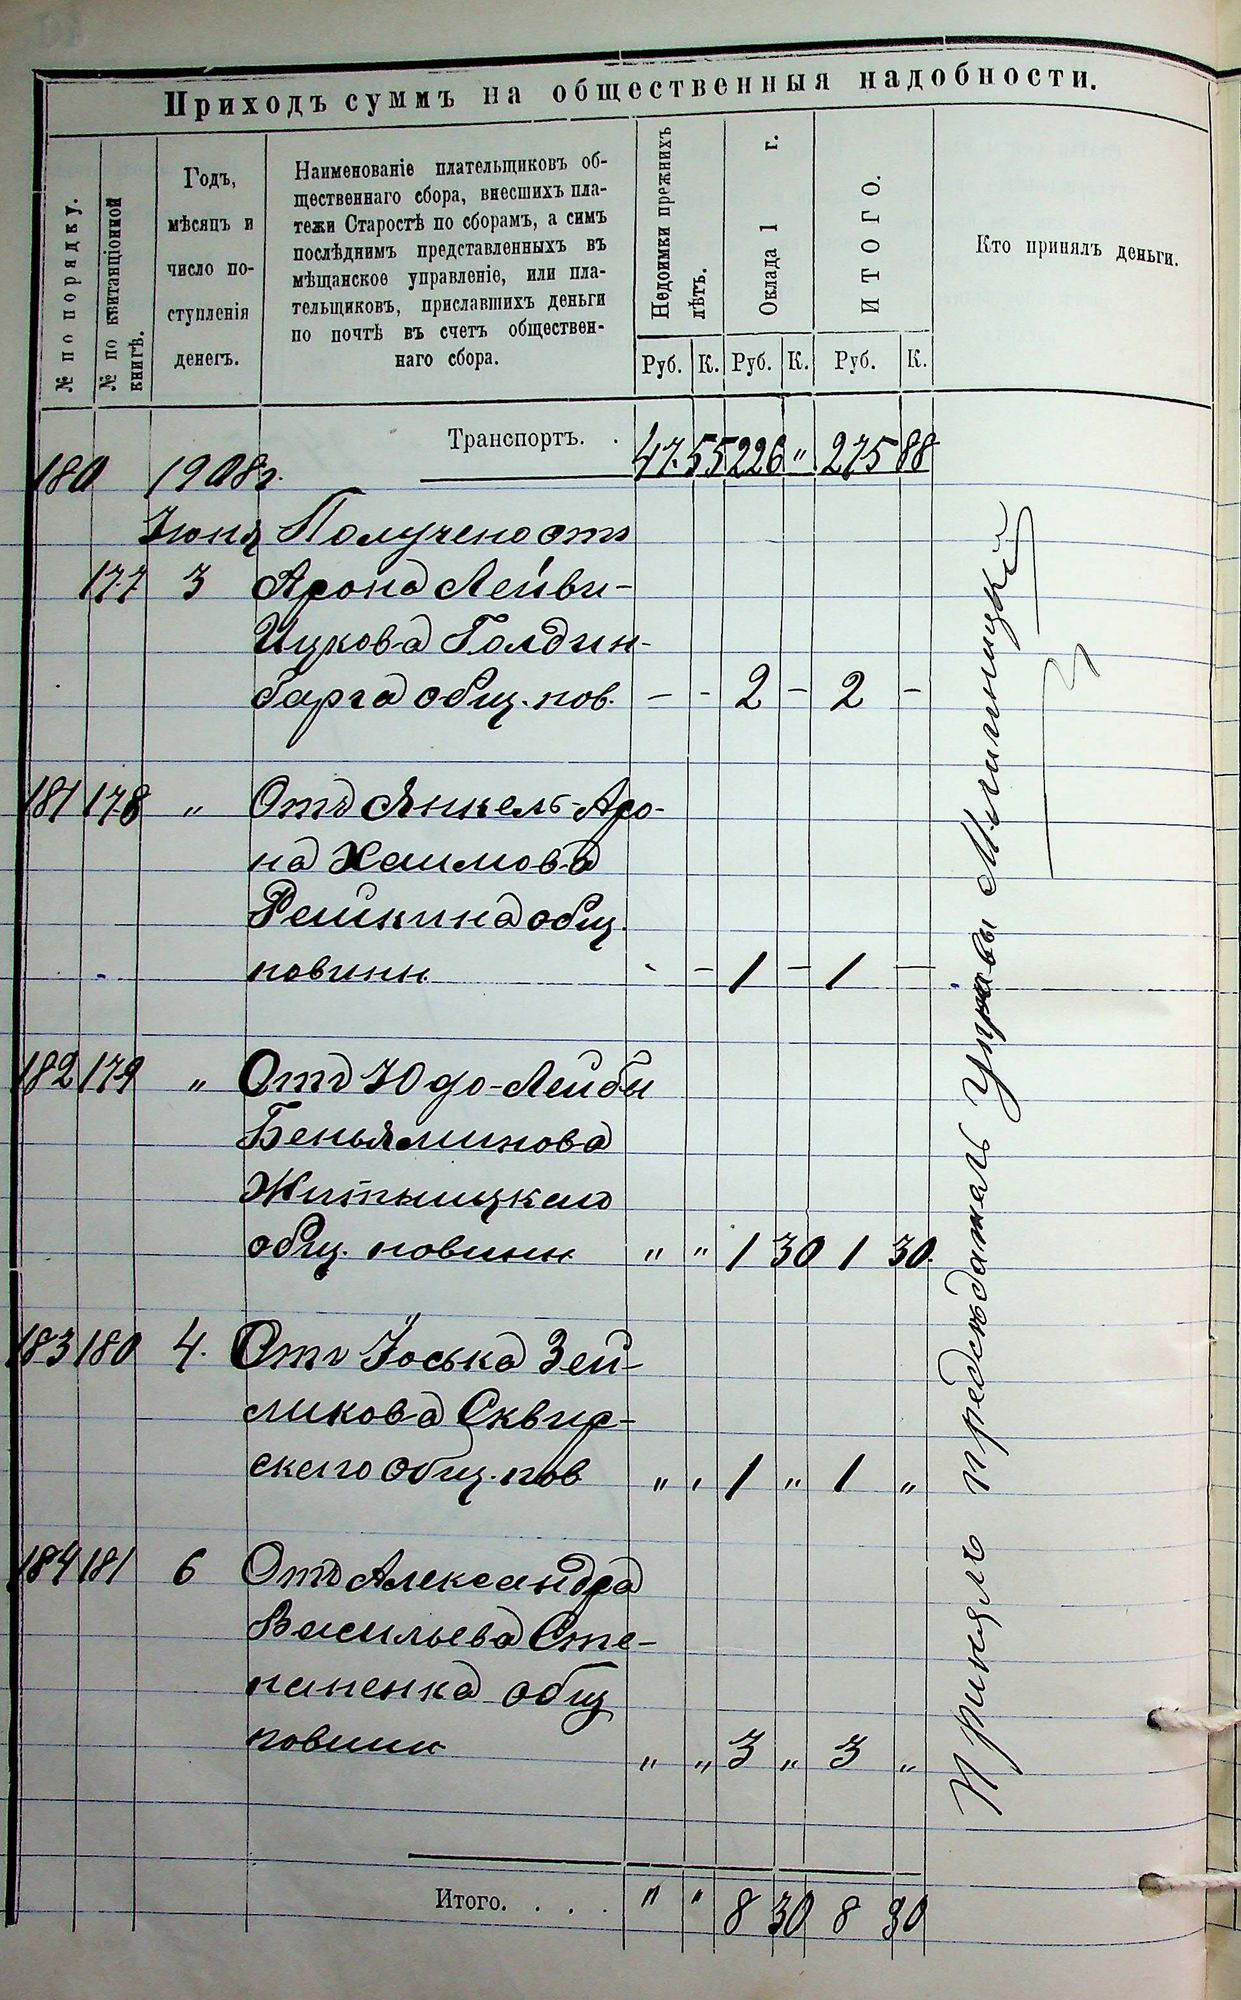 Приходъ суммъ на общественныя надобности.
№ по порядку.
№ по квитанціонной книгѣ.
Годъ,
мѣсяцъ и
число по-
ступленія
денегъ.
Наименованіе плательщиковъ об-
щественнаго сбора, внесшихъ пла-
тежи Старостѣ по сборамъ, а симъ
послѣднимъ представленныхъ въ
мѣщанское управленіе, или пла-
тельщиковъ, приславшихъ деньги
по почтѣ въ счетъ обществен-
наго сбора.
Недоимки прежнихъ лѣтъ.
Оклада 1 г.
ИТОГО.
Кто принялъ деньги.
Руб. К. Руб. К. Руб. К.
Транспортъ. . 47. 55 226 „ 275 88
180 1908г.
Іюня Получено отъ
177 3 Арона Лейви-
Ицкова Голдин-
барга общ. пов. — - 2 — 2 —
181 178 „ Отъ Янкель-Аро-
на Хаимова
Рейкина общ.
повинн. - — 1 — 1 —
182 179 „ Отъ Юдо-Лейбы
Беньяминова
Житницкаго
общ. повинн „ „ 1 30 1 30.
183 180 4. Отъ Іоська Зей-
ликова Сквир-
скаго общ. пов „ „ 1 „ 1 „
184 181 6 Отъ Александра
Васильева Сте-
паненка общ
повинн „ „ 3 „ 3 „
Итого. . . . „ „ 8 30 8 30
Принялъ предсѣдатель Управы